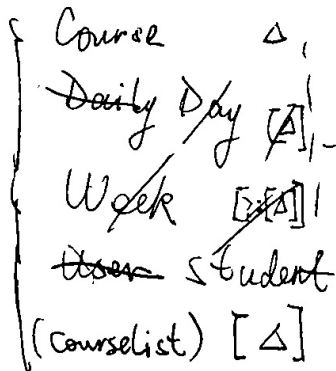 Course Δ
Daily Day [Δ]
Week [Δ]
User student
(courselist) [Δ]